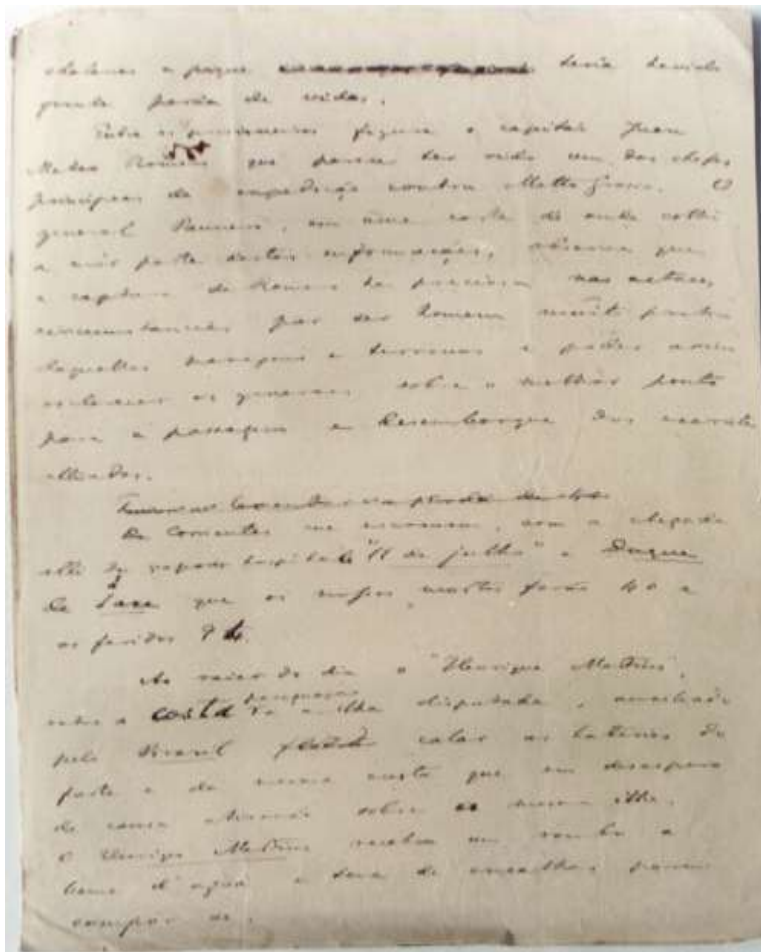 a parque teria havido
grande perda de vidas.
Entre os prisioneiros figura o capitão Juan
Matheo Romero que parece ter sido um dos chefes
principaes da expedição contra Matto Grosso. O
general Paunero, em uma carta de onde colhi
a mór parte destas informações, observa que
a captura de Romero he preciosa nas actuaes
circumstancias por ser homem muito pratico
daquellas paragens e terrenos e poder assim
esclarecer os generaes sobre o melhor ponto
para a passagem e desembarque dos exercitos
alliados.
De Corrientes me escrevem, com a chegada
alli do vapor hospital "11 de julho" e Duque
de Saxe que os nossos mortos forão 40 e
os feridos
Ao raiar do dia o "Henrique Martins",
paraguaya
entre a costa e a ilha disputada, auxiliado
pelo calar as baterias do
forte e da mesma costa que em desespero
de causa atiravão sobre a mesma ilha.
O Henrique Martins recebeu um rombo a
lume d'agua e teve de encalhar para
compor-se.